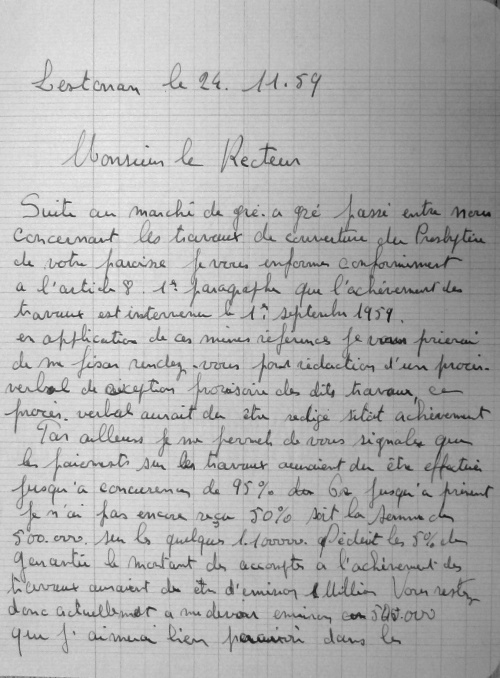 Lestonan le 24. 11.59
Monsieur le Recteur
Suite au marché de gré. a gré passé entre nous
concernant les travaux de couverture du Presbytère
de votre paroisse je vous informe conformément
a l'article 8. 1er paragraphe que l'achévement des
travaux est intervenu le 1er septembre 1959.
en application de ces mêmes référence je vous prierai
de me fixer rendez-vous pour rédaction d'un procès.
verbal de réception provisoire des dits travaux, ce
procès. verbal aurait du être redigé sitôt achèvement
Par ailleurs je me permets de vous signaler que
les paiements sur les travaux auraient du être effectués
jusqu'a concurence de 95% Or jusqu'a présent
je n'ai pas encore reçu 50% soit la somme de
500.000. sur les quelques 1.100000. Déduit les 5% de
garantie le montant des accomptes a l'achévement des
travaux auraient du être d'environ 1 Million Vous restez
donc actuellement a me devoir environ 545.000
que j'aimerai bien percevoir dans les